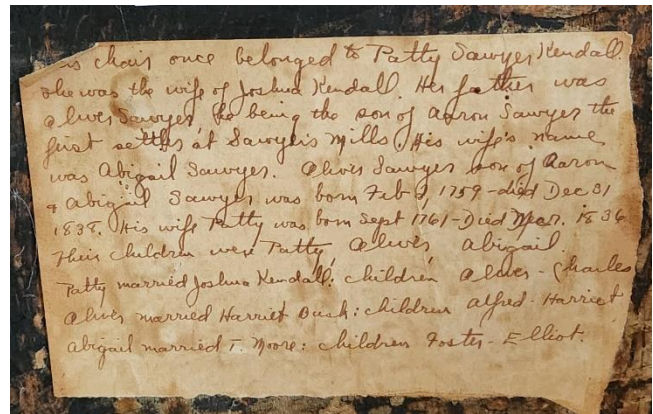 is chair once belonged to Patty Sawyer Kendall.
She was the wife of Joshua Kendall. Her father was
Oliver Sawyer he being the son of Aaron Sawyer the
first settler at Sawyer's Mills. His wife's name
was Abigail Sawyer. Oliver Sawyer son of Aaron
& Abigail Sawyer was born Feb 1759 - died Dec 31
1838. His wife Patty was born Sept 1761 - Died Mar. 1836
Their children were Patty Oliver Abigail.
Patty married Joshua Kendall: children Oliver - Charles
Oliver married Harriet Bush: children Alfred - Harriet
Abigail married T. Moore: children Foster - Elliot.